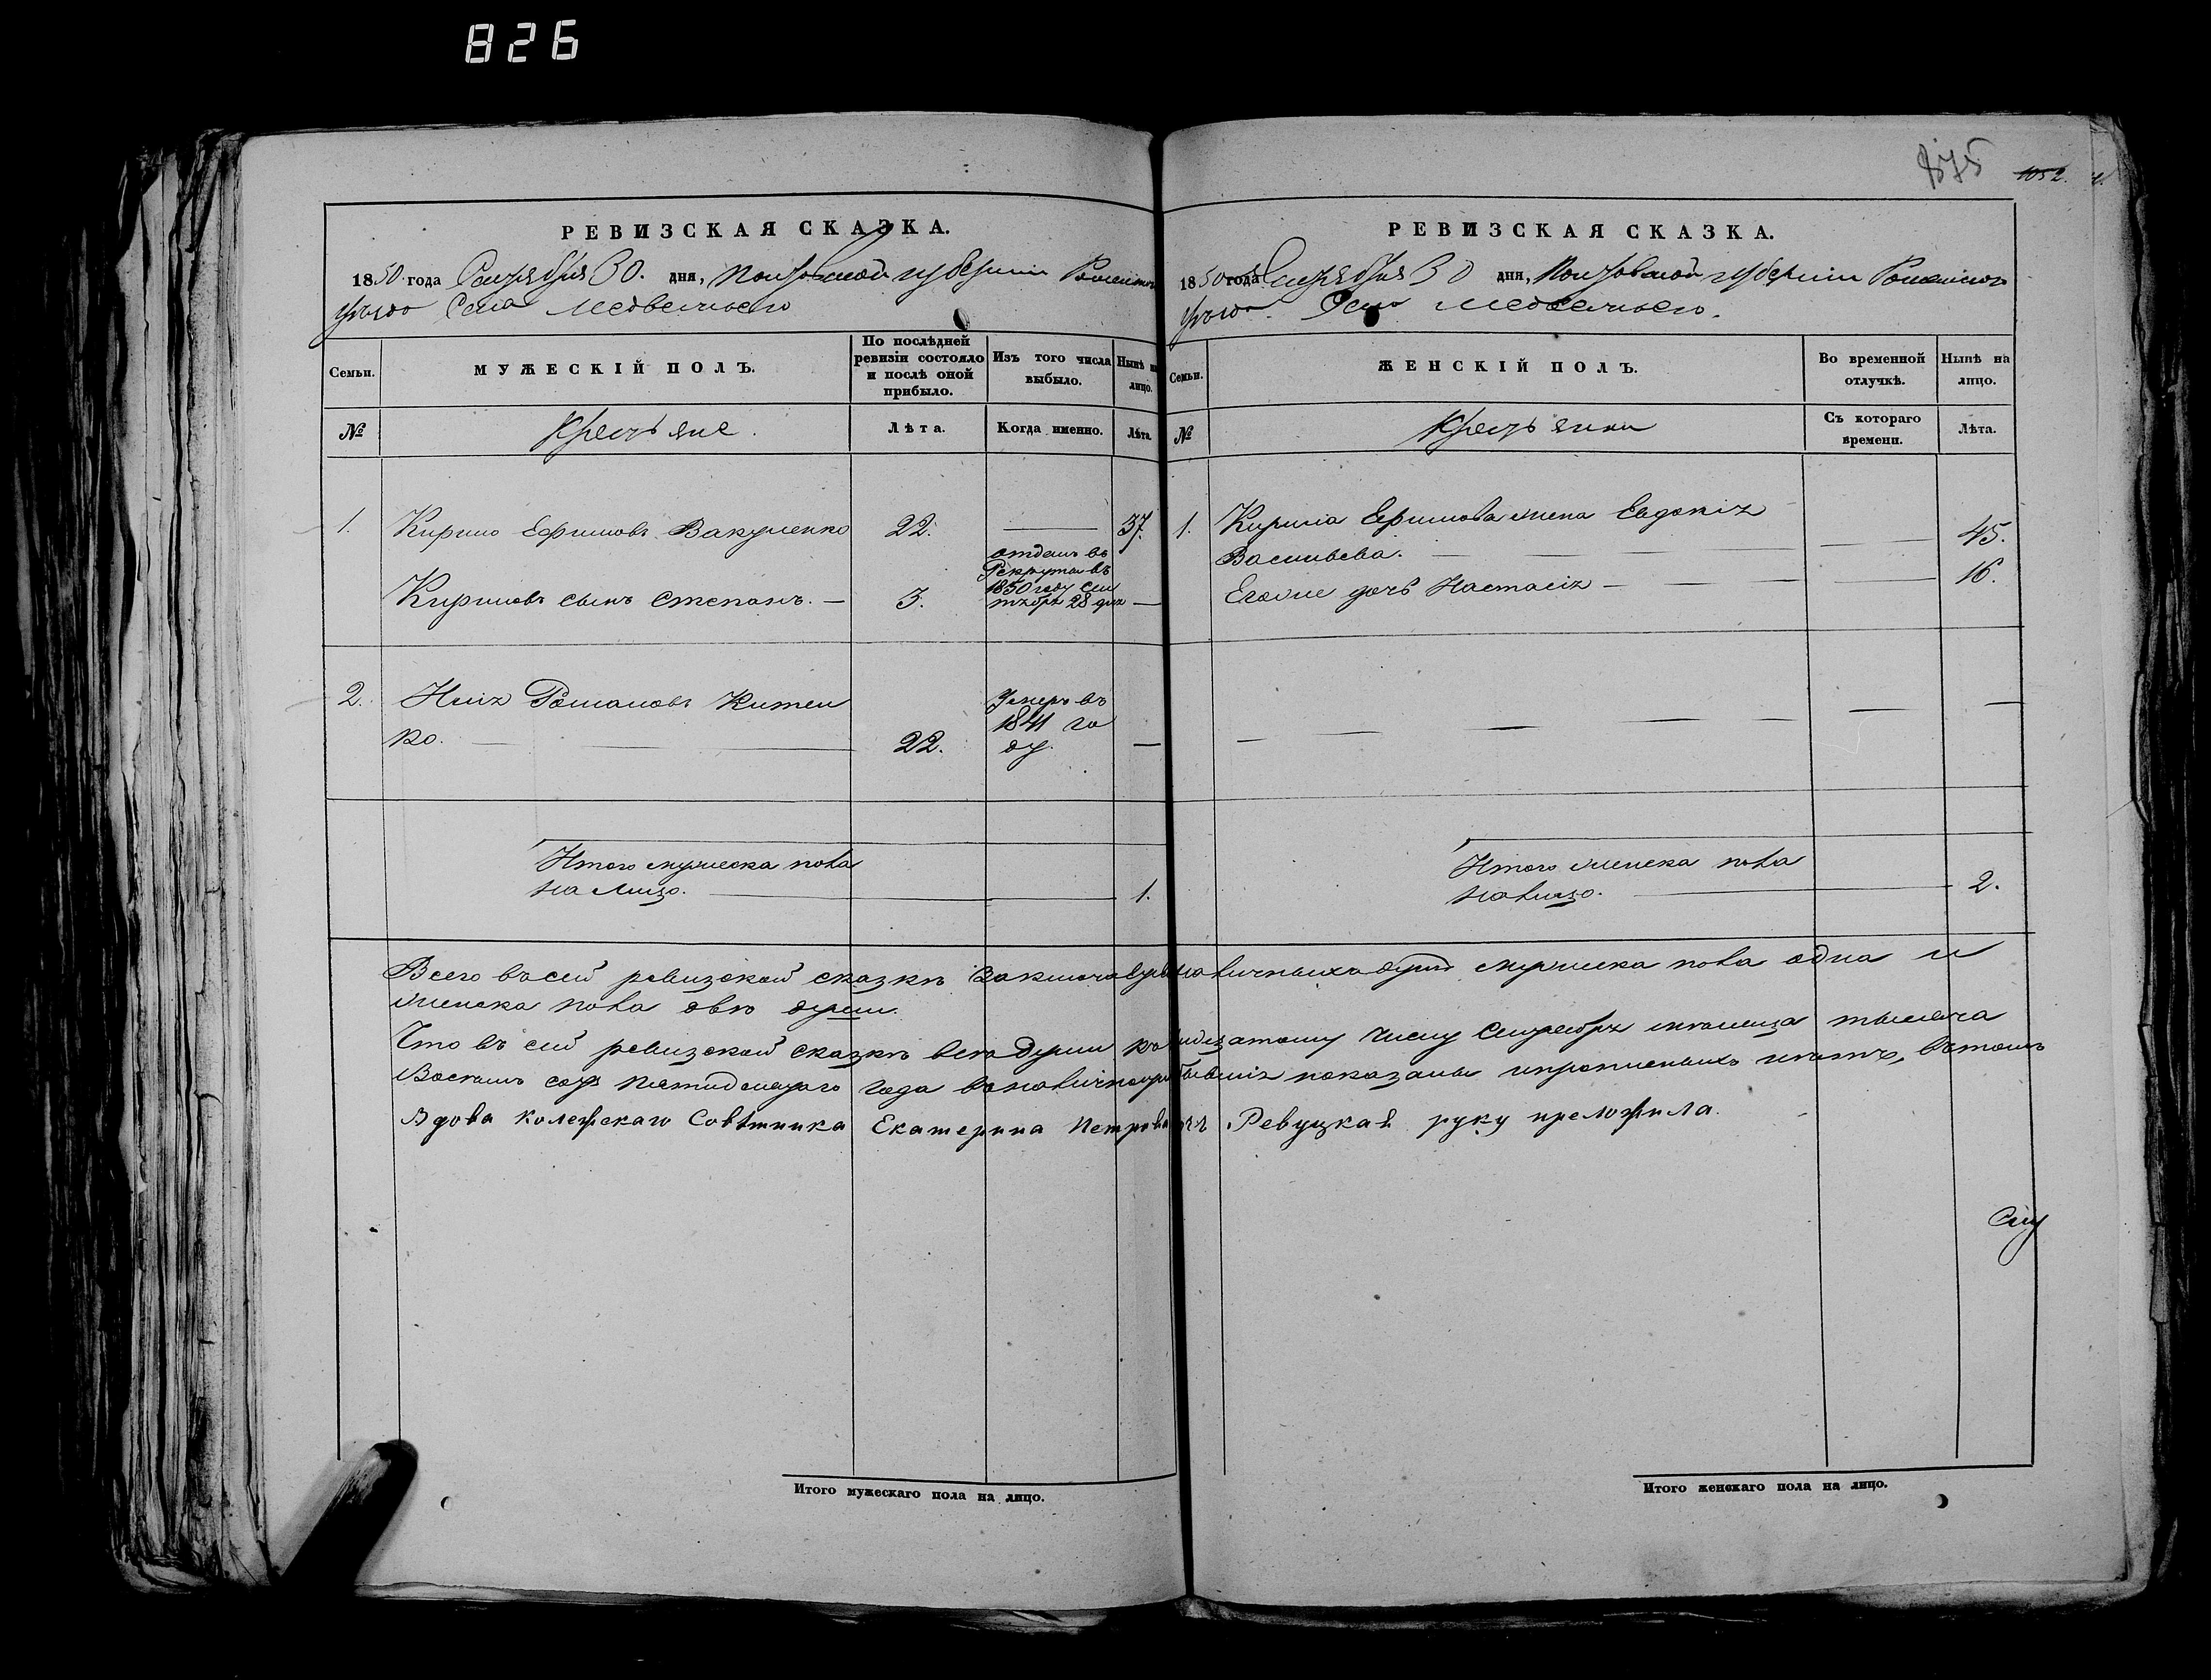 826
875 1052.
РЕВИЗСКАЯ СКАЗКА.
1850 года Сентября 30. дня, Полтавской губерніи Роменского
уезда Села Медвежьего
Семьи. МУЖЕСКІЙ ПОЛЪ. По послѣдней ревизіи состояло и послѣ оной прибыло. Изъ того числа выбыло. Нынѣ на лицо.
№ Крестьяне. Лѣта. Когда именно. Лѣта.
1. Кирило Ефимовъ Вакуленко 22. 37.
Кириловъ сынъ Степанъ. 3. отданъ въ
Рекруты въ
1850 году Сен
тября 28 дня
2. Илія Романовъ Китен
ко. 22. Умеръ въ
1841 го
ду.
Итого мужеска пола
на лицо. 1.
РЕВИЗСКАЯ СКАЗКА.
1850 года Сентября 30 дня, Полтавской губерніи Роменского
уезда Села Медвежьего.
Семьи. ЖЕНСКІЙ ПОЛЪ. Во временной отлучкѣ. Нынѣ на лицо.
№ Крестьянки Съ котораго времени. Лѣта.
1. Кирила Ефимова жена Евдокія
Васильева. 45.
Еговие дочь Настасія 16.
Итого женска пола
налицо. 2.
Всего въ сей ревизской сказкѣ наличныхъ душъ мужеска пола одна и
женска пола двѣ души.
Что въ сей ревизской сказкѣ все души къ числу Сентября мѣсяца тысяча
восемь сотъ пятидесятого года показаны и прописныхъ нѣтъ, въ томъ
Вдова Колежскаго Совѣтника Екатерина Петровна Ревуцкая руку преложила.
Итого мужескаго пола на лицо.
Итого женскаго пола на лицо.